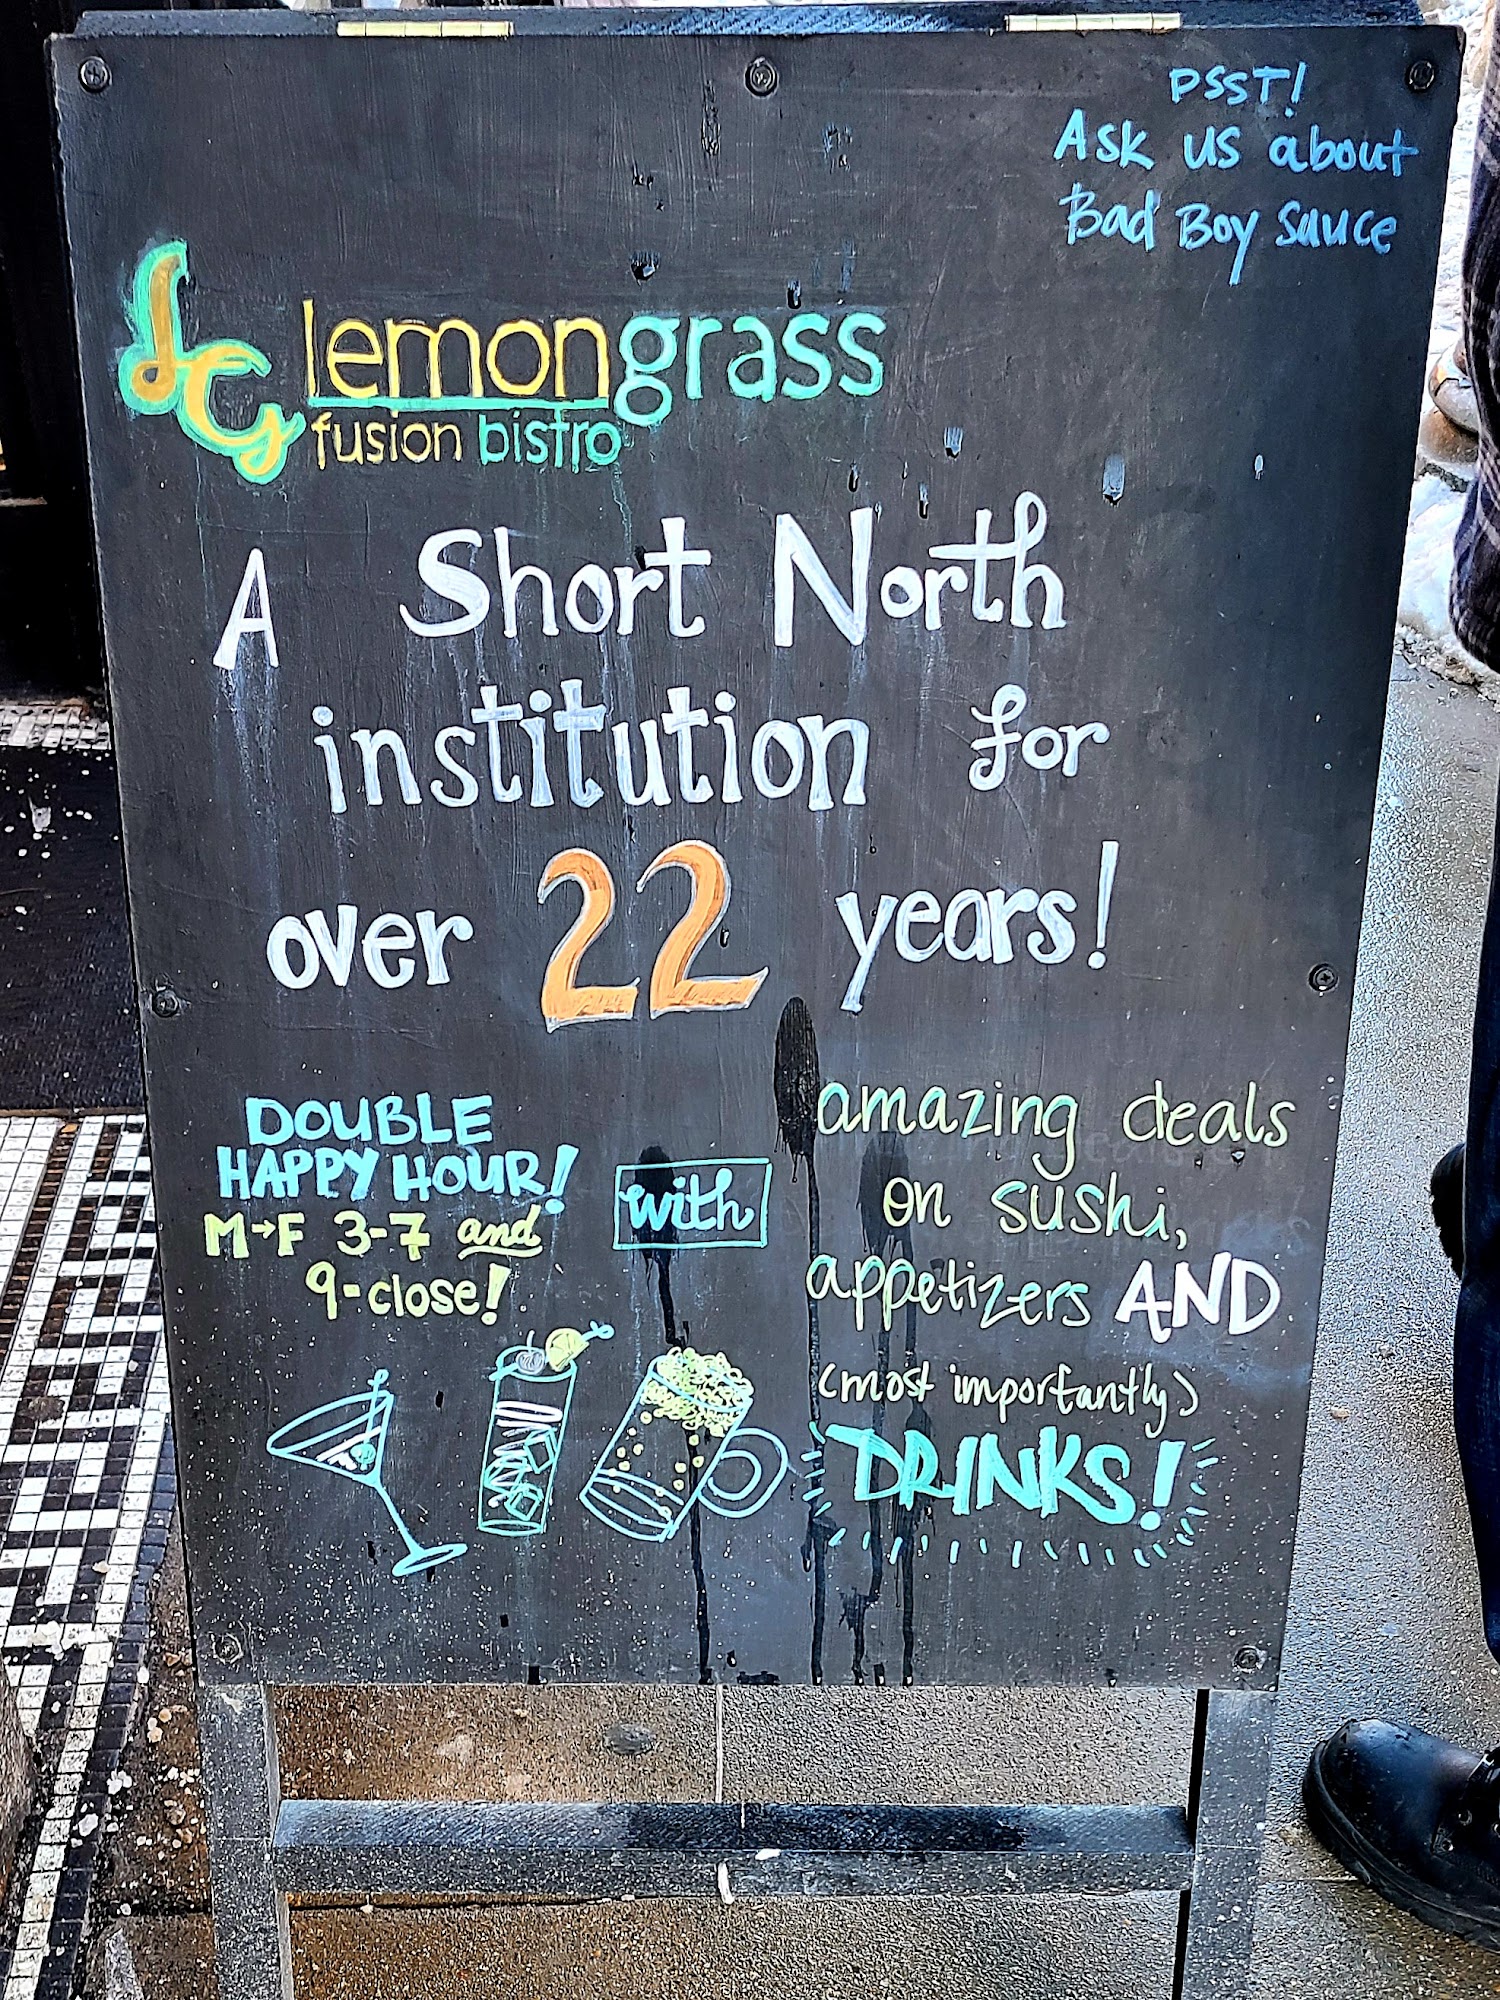 PSST!
Ask us about
Bad Boy Sauce
LG
lemongrass
fusion bistro
A Short North
institution for
over 22 years!
DOUBLE
HAPPY HOUR!
M→F 3-7 and
9-close!
with
amazing deals
on sushi,
appetizers AND
(most importantly)
DRINKS!